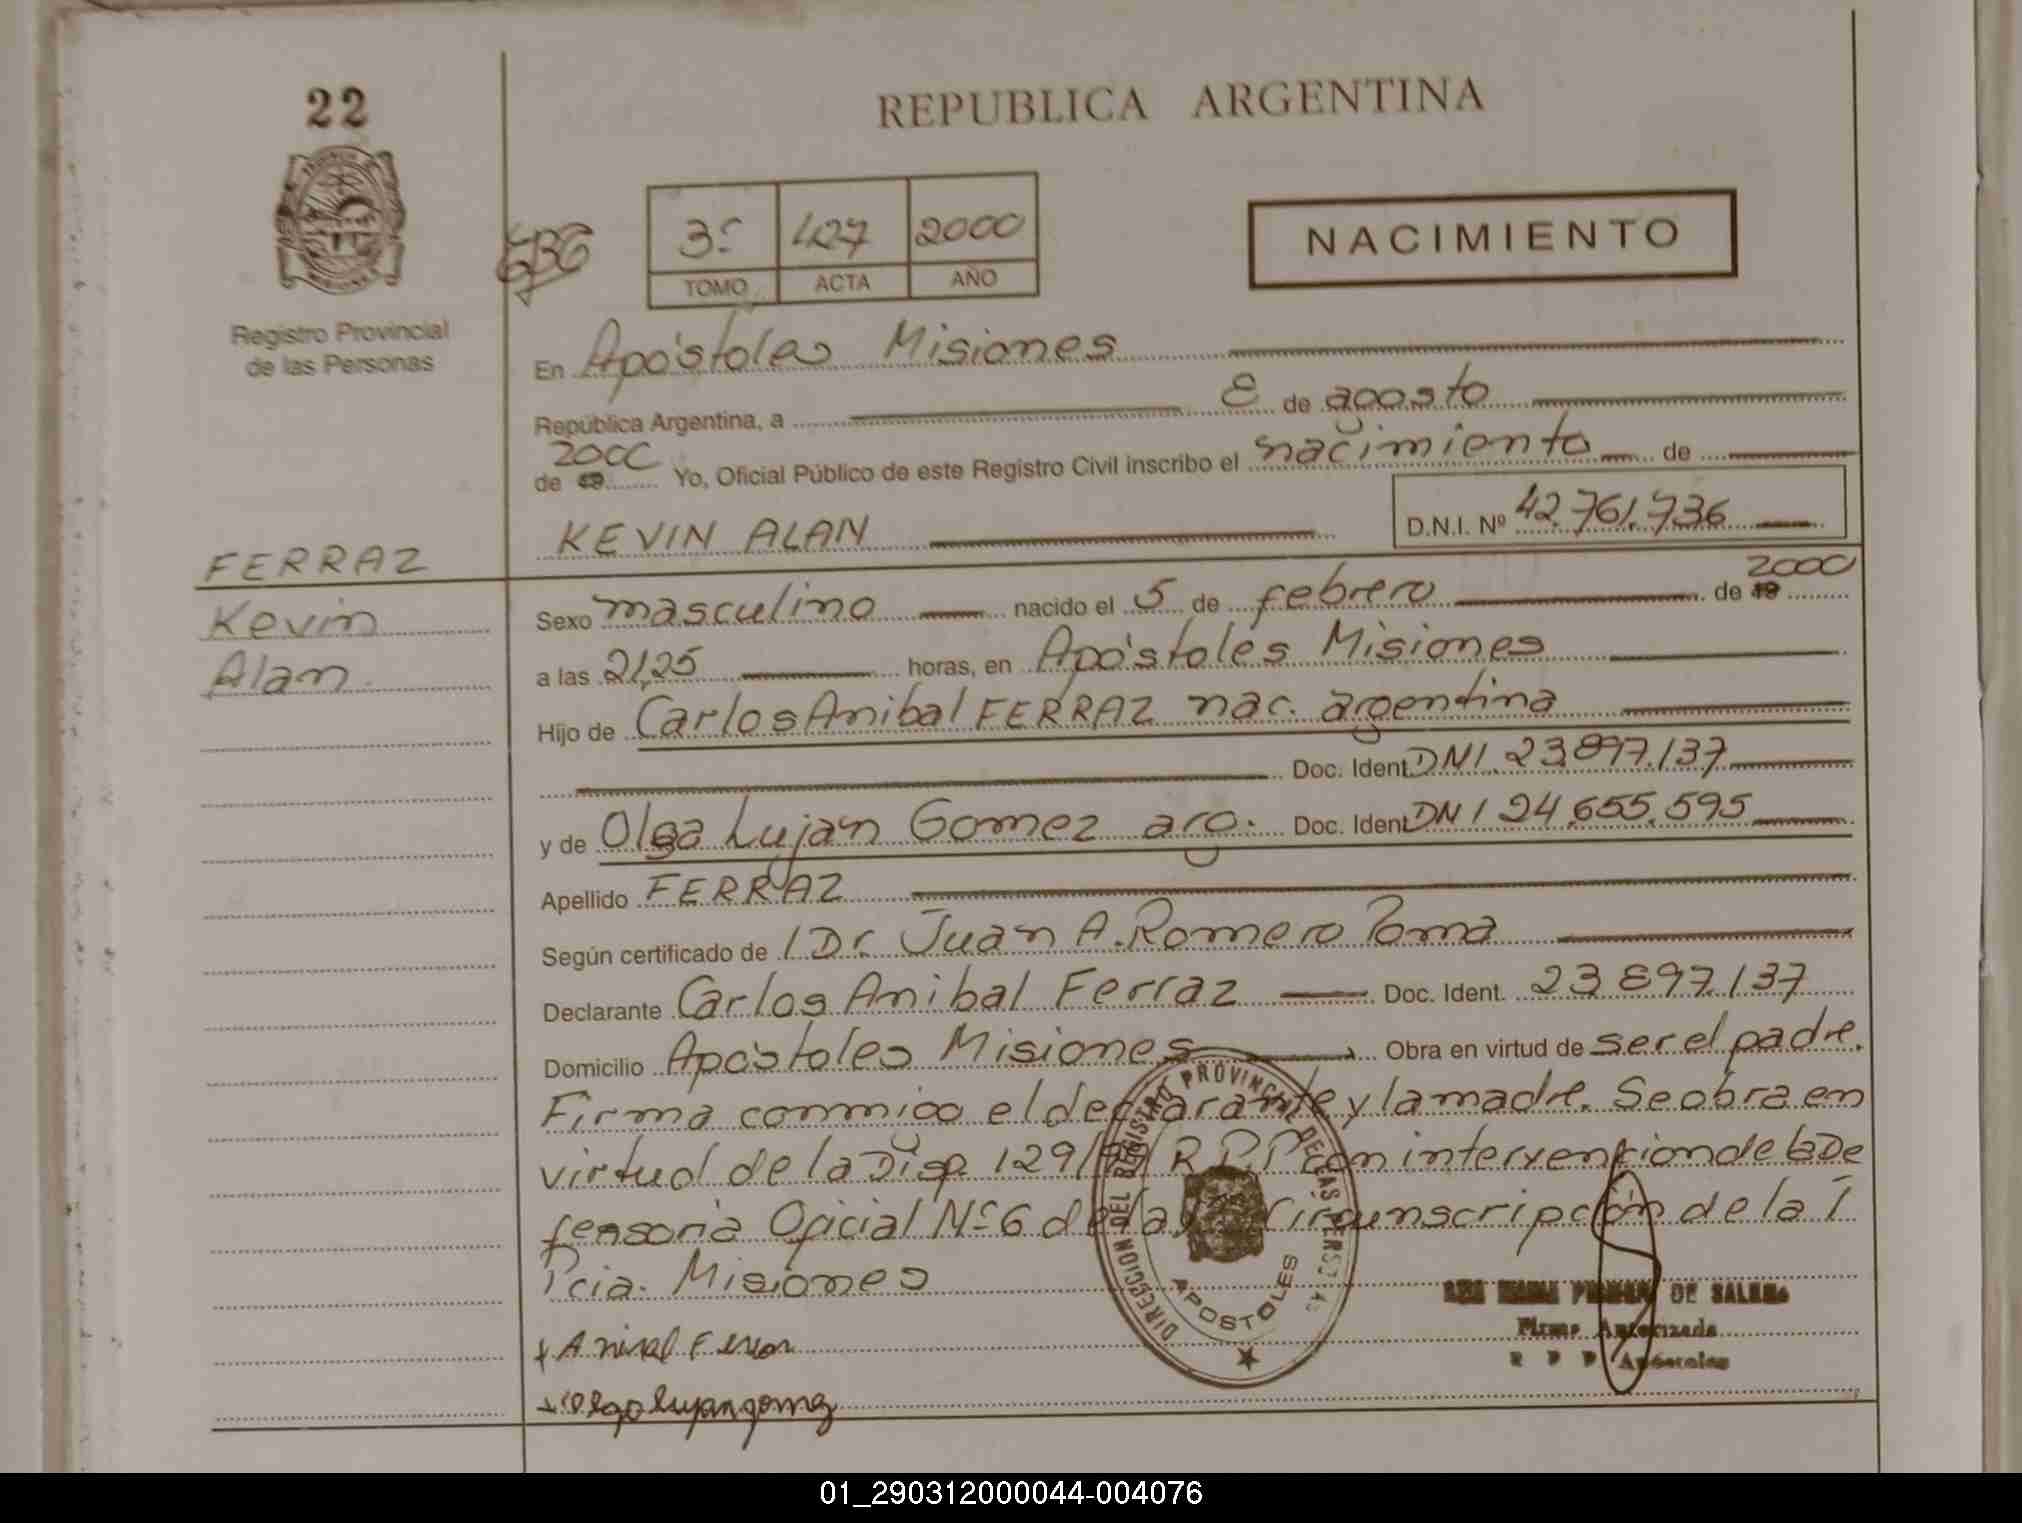 22
REPUBLICA ARGENTINA
3º 427 2000
TOMO ACTA AÑO
NACIMIENTO
Registro Provincial
de las Personas
En Apóstoles Misiones
República Argentina, a 8 de agosto
de 19 2000 Yo, Oficial Público de este Registro Civil inscribo el nacimiento de
KEVIN ALAN D.N.I. Nº 42.761.736
FERRAZ
Kevin
Alan
Sexo masculino nacido el 5 de febrero de 19 2000
a las 21,25 horas, en Apóstoles Misiones
Hijo de Carlos Anibal FERRAZ nac. argentina
Doc. Ident. DNI. 23.897.137
y de Olga Lujan Gomez arg. Doc. Ident. DNI 24.655.595
Apellido FERRAZ
Según certificado de l Dr. Juan A. Romero Poma
Declarante Carlos Anibal Ferraz Doc. Ident. 23897.137
Domicilio Apóstoles Misiones Obra en virtud de ser el padre.
Firma conmigo el declarante y la madre. Se obra en
virtud de la Disp. 129/ R.P.P con intervencion de la De
fensoria Oficial Nº 6 de la Circunscripción de la
Pcia. Misiones
DIRECCION DEL REGISTRO PROVINCIAL DE LAS PERSONAS
APOSTOLES
DE
Firma Autorizada
R P P Apóstoles
Olga lujan gomez
01_290312000044-004076